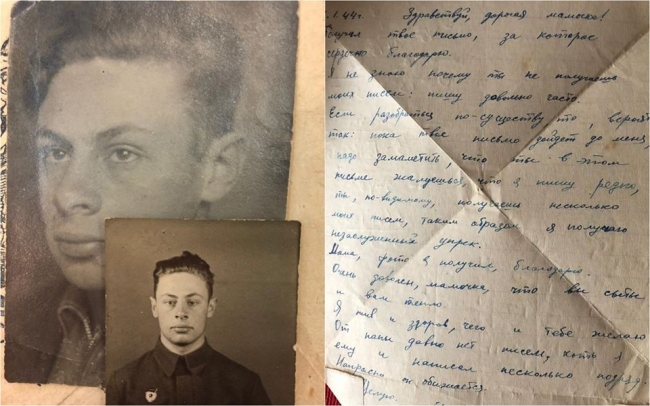 .1.44г. Здравствуй, дорогая мамочка!
твоё письмо, за которое
сердечно благодарю.
Я не знаю почему ты не получаешь
моих писем: пишу довольно часто.
Если разобраться по-существу то,
так: пока твоё письмо дойдет до меня,
надо заметить, что ты в этом
письме жалуешься, что я пишу редко,
ты, по-видимому, получаешь несколько
моих писем, таким образом я получаю
незаслуженный упрек.
Мама, фото я получил, благодарю.
Очень доволен, мамочка, что вы сыты
и вам тепло.
Я жив и здоров, чего и тебе желаю
От папы давно нет писем, хоть я
ему и написал несколько подряд.
Напрасно он обижается.